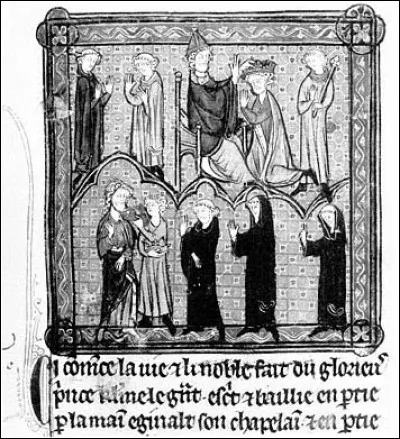 Ci com̃ce la vie ⁊ li noble fait du glorieu᷒
p̃nce Kl̃mele g̃t. esc̃t ⁊ baillie en ꝑtie
ꝑ la maĩ eginalt son chapelaĩ ⁊ en ꝑtie